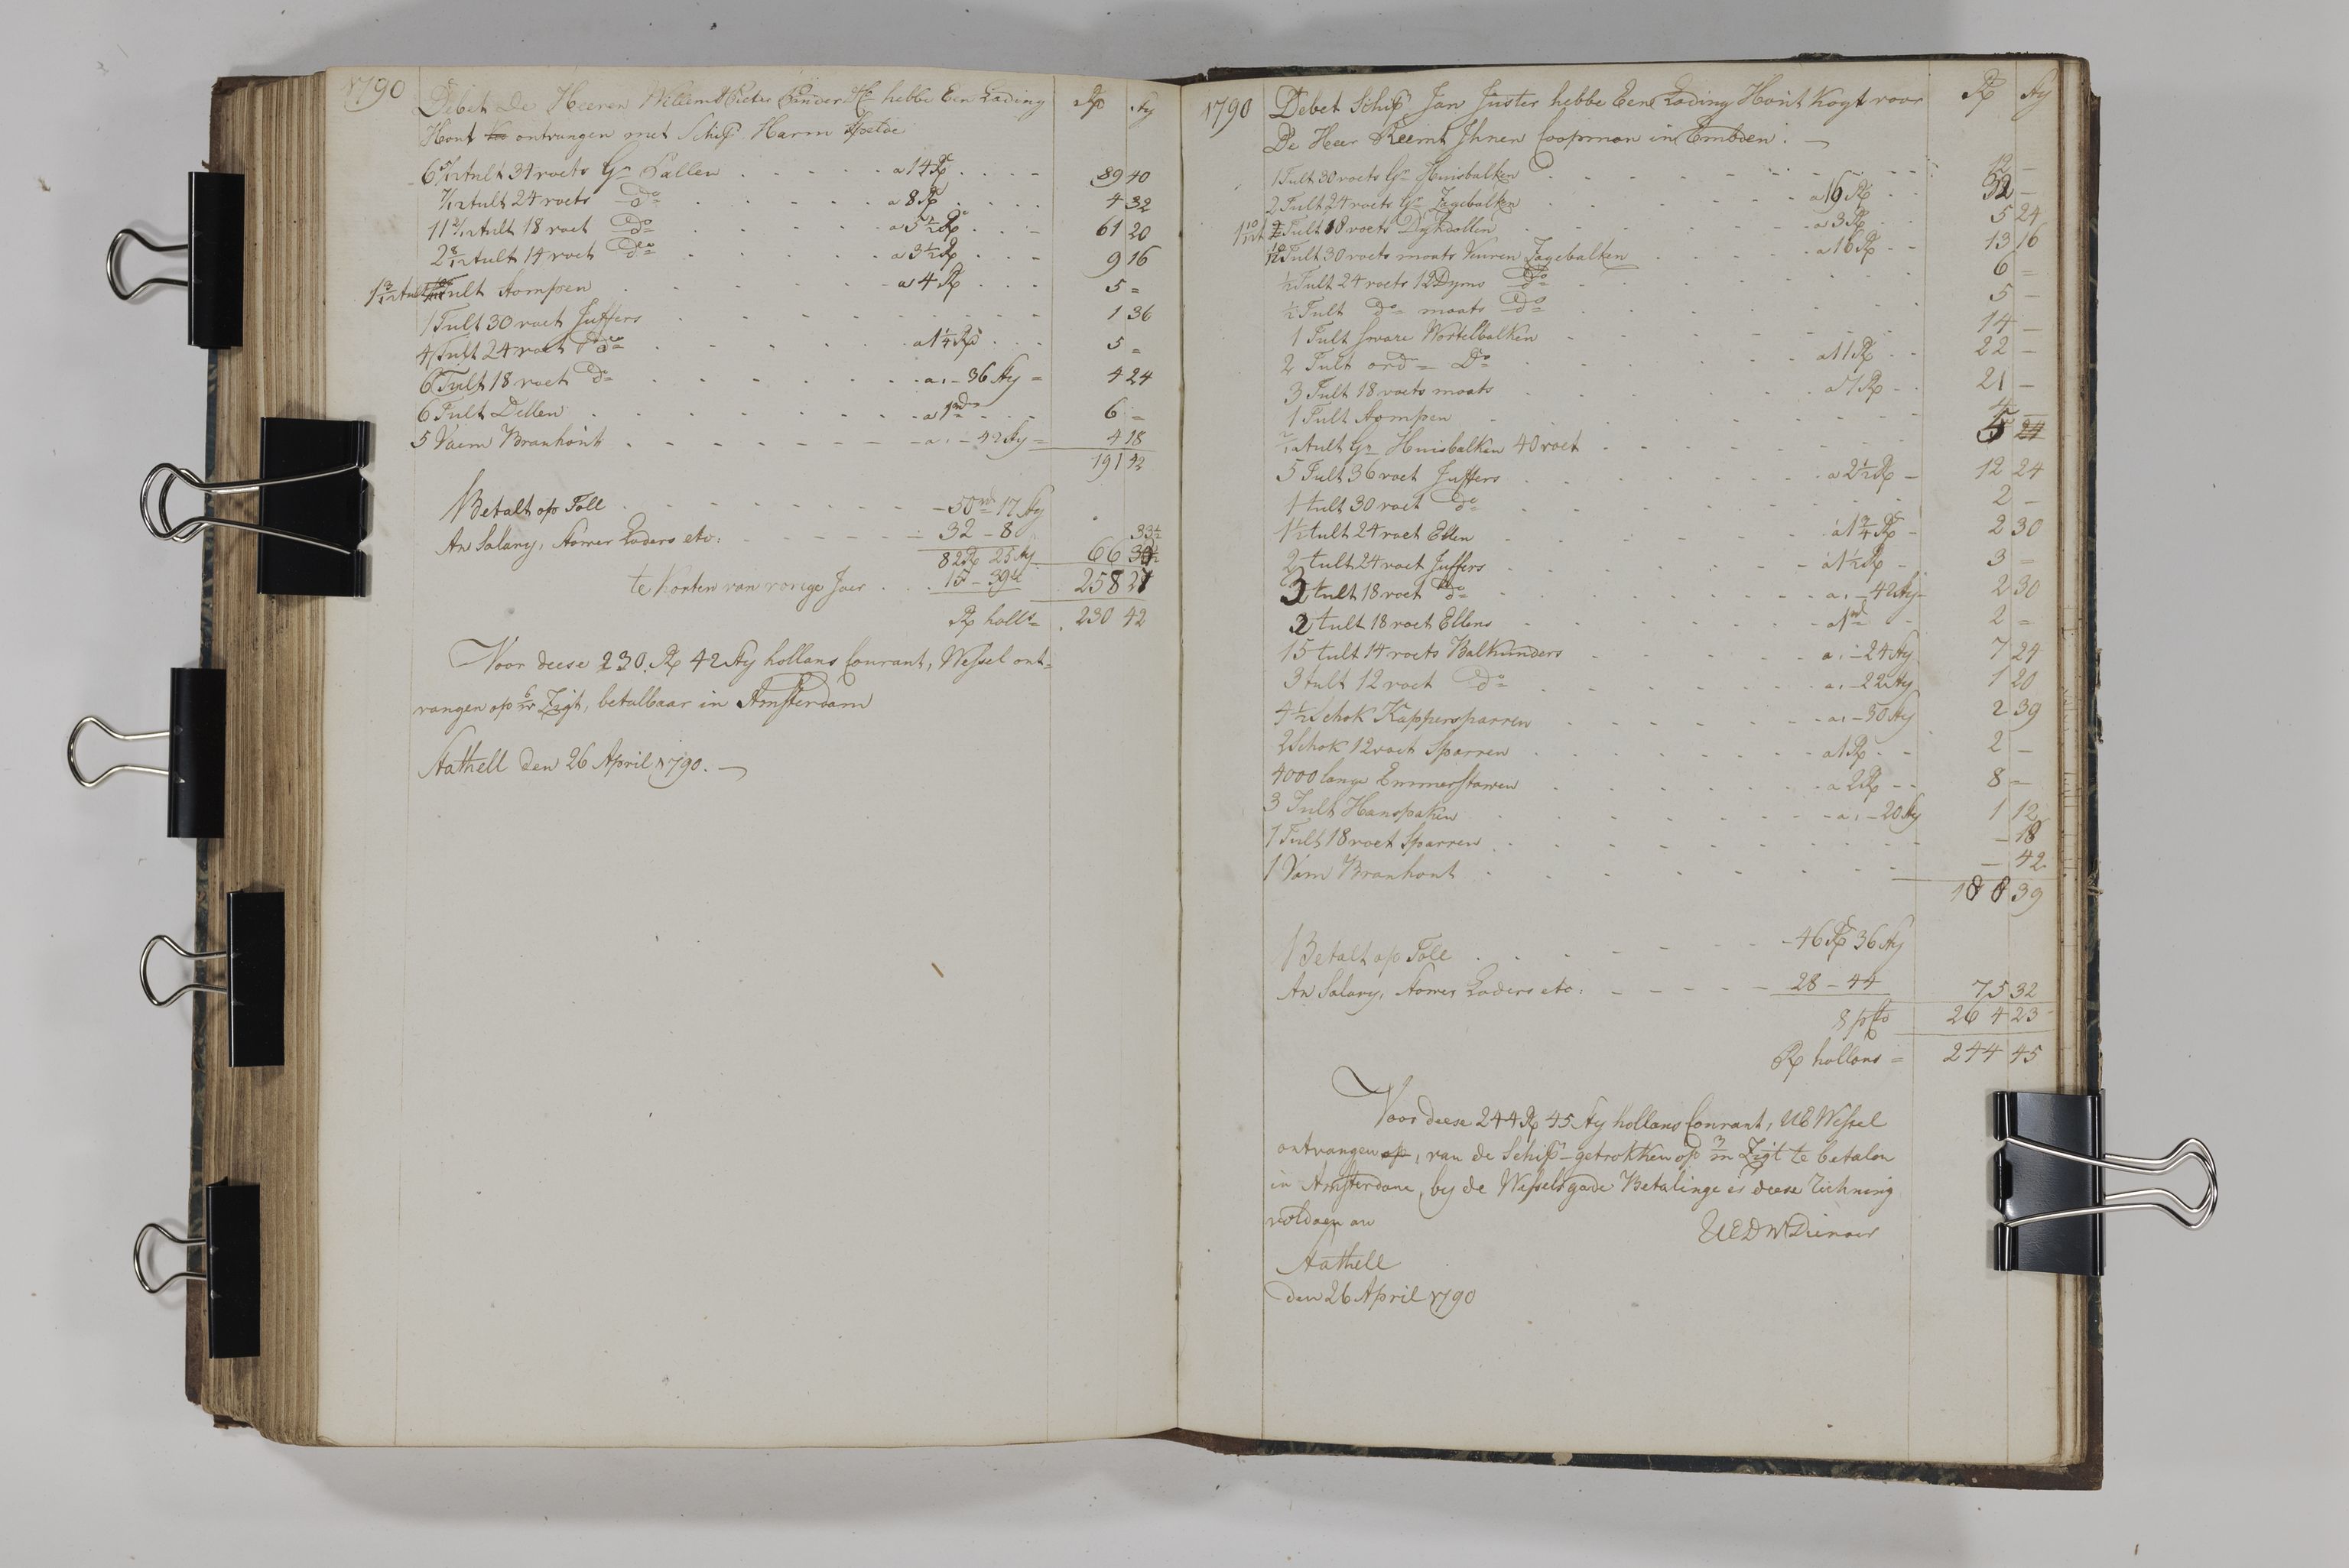 1790 Debet De Heeren Willem & Pieter hebbe Een Lading Rd Sty
Hont ontvangen met Schip Harm
6 5/12 tult 34 voets Gr Sallen a 14 Rd 89 40
7/12 tult 24 voets Do a 8 Rd 4 32
11 2/12 tult 18 voet Do a 5 1/2 Rd 61 20
2 8/12 tult 14 voet Do a 3 1/2 Rd 9 16
1 3/12 tult Stompen a 4 Rd 5 =
1 Tult 30 voet Juffers 1 36
4 Tult 24 voet Do a 1 1/4 Rd 5 =
6 Tult 18 voet Do a : - 36 Sty = 4 24
6 Tult Dellen a 1 Rd 6 =
5 Vaem Branhout a : - 42 Sty = 4 18
191 42
Betalt op Toll 50 Rd 17 Sty
An Salary, Stower Laders etc: 32 - 8 33 1/2
82 Rd 25 Sty 66
te Korten van vorige Jaer 15 - 39 1/2 258 27
Rd holls = 230 42
Voor deese 230 Rd 42 Sty hollans Courant, Wessel ont=
vangen op 6/w Zigt, betalbaar in Amsterdam
Stathell den 26 April 1790.
1790 Debet Schip Jan Juster hebbe Een Lading Hont Kogt voor Rd Sty
De Heer Reemt Ihnen Coopman in Embden.
1 Tult 30 voets Gr Huisbalken 12 -
2 Tult 24 voets Gr Zagebalken a 16 Rd 32 -
1 10/12 t Tult 18 voets Dykdollen a 3 Rd 5 24
10/12 Tult 30 voets maats Vuuren Zagebalken a 16 Rd 13 16
1/2 Tult 24 voets 12 Dyms Do 6 =
1/2 Tult Do maats Do 5 -
1 Tult sware Wortelbalken 14 -
2 Tult ord= Do a 11 Rd 22 -
3 Tult 18 voets maats a 7 Rd 21 -
1 Tult Stompen 4 -
tult Gr Huisbalken 40 voet 5 24
5 Tult 36 voet Juffers a 2 1/2 Rd 12 24
1 tult 30 voet Do 2 -
1 1/2 tult 24 voet Ellen a 1 3/4 Rd 2 30
2 tult 24 voet Juffers a 1 1/2 Rd 3 =
3 tult 18 voet Do a : - 42 Sty 2 30
2 tult 18 voet Ellens a 1 Rd 2 =
15 tult 14 voets Balkunders a : - 24 Sty 7 24
3 tult 12 voet Do a : - 22 Sty 1 20
4 1/2 Schok Kappersparren a : - 30 Sty 2 39
2 Schok 12 voet Sparren a 1 Rd 2 -
4000 lange Emmerstawen a 2 Rd 8 =
3 Tult Hanspaken a : - 20 Sty 1 12
1 Tult 18 voet Sparren - 18
1 Vam Branhont - 42
188 39
Betalt op Toll 46 Rd 36 Sty
An Salary, Stower Laders etc: 28 - 44 75 32
264 23
8 pCto
Rd hollans = 244 45
Voor deese 244 Rd 45 Sty hollans Courant, UE Wessel
ontvangen op, van de Schipr getrokken op 3/m Zigt te betalen
in Amsterdam, by de Wessels gade Betalinge is deese Rekning
voldaen an
UEDW Dienaer
Stathell
den 26 April 1790